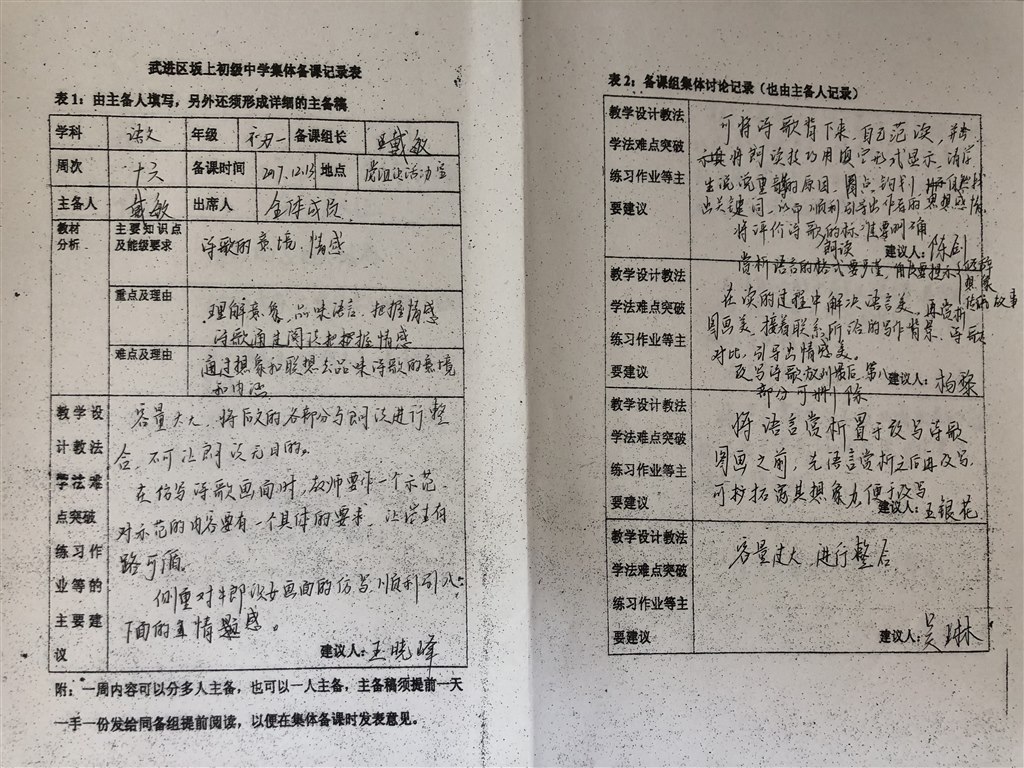 武进区坂上初级中学集体备课记录表
表1：由主备人填写，另外还须形成详细的主备稿
学科 语文 年级 初一 备课组长 戴敏
周次 十六 备课时间 2017.12.13 地点 活动室
主备人 戴敏 出席人 全体成员
教材分析 主要知识点及能级要求 诗歌的意境、情感
重点及理由 理解意象，品味语言，把握情感
诗歌通过阅读把握情感
难点及理由 通过想象和联想去品味诗歌的意境
和内涵
教学设计教法学法难点突破练习作业等的主要建议
容量太大，将后文的各部分与朗读进行整
合，不可让朗读无目的。
在仿写诗歌画面时，教师要作一个示范，
对示范的内容要有一个具体的要求，让学生有
路可循。
侧重对牛郎织女画面的仿写，顺利引入
下面的情感。
建议人：王晓峰
附：一周内容可以分多人主备，也可以一人主备，主备稿须提前一天
一手一份发给同备组提前阅读，以便在集体备课时发表意见。
表2：备课组集体讨论记录（也由主备人记录）
教学设计教法学法难点突破练习作业等主要建议
可将诗歌背下来，自己范读，并
将朗读技巧用填空形式显示，请学
生说说重音的原因，圈点钩划，找
出关键词，顺利引导出作者的思想感情。
将评价诗歌朗读的标准要明确
建议人：陈剑
赏析语言的格式要严谨，角度要提示
想象
故事
教学设计教法学法难点突破练习作业等主要建议
在读的过程中解决语言美，再赏析
图画美，接着联系所读的写作背景，诗歌
对比，引导出情感美。
改写诗歌放到最后，第八
部分可删除
建议人：杨黎
教学设计教法学法难点突破练习作业等主要建议
将语言赏析置于改写诗歌
图画之前，先语言赏析之后再改写，
可拓宽其想象力，便于改写
建议人：王银花
教学设计教法学法难点突破练习作业等主要建议
容量过大，进行整合
建议人：吴琳